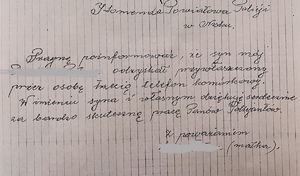 Komenda Powiatowa Policji
w Nisku.
Pragnę poinformować, że syn mój
odzyskał przywłaszczony
przez osobę trzecią telefon komórkowy.
W imieniu syna i własnym dziękuję serdecznie
za bardzo skuteczną pracę Panów Policjantów.
Z poważaniem
(matka).